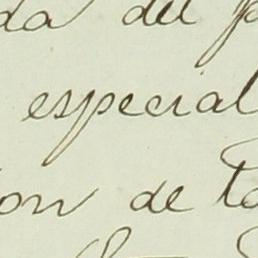 da del p
especial
ion de to